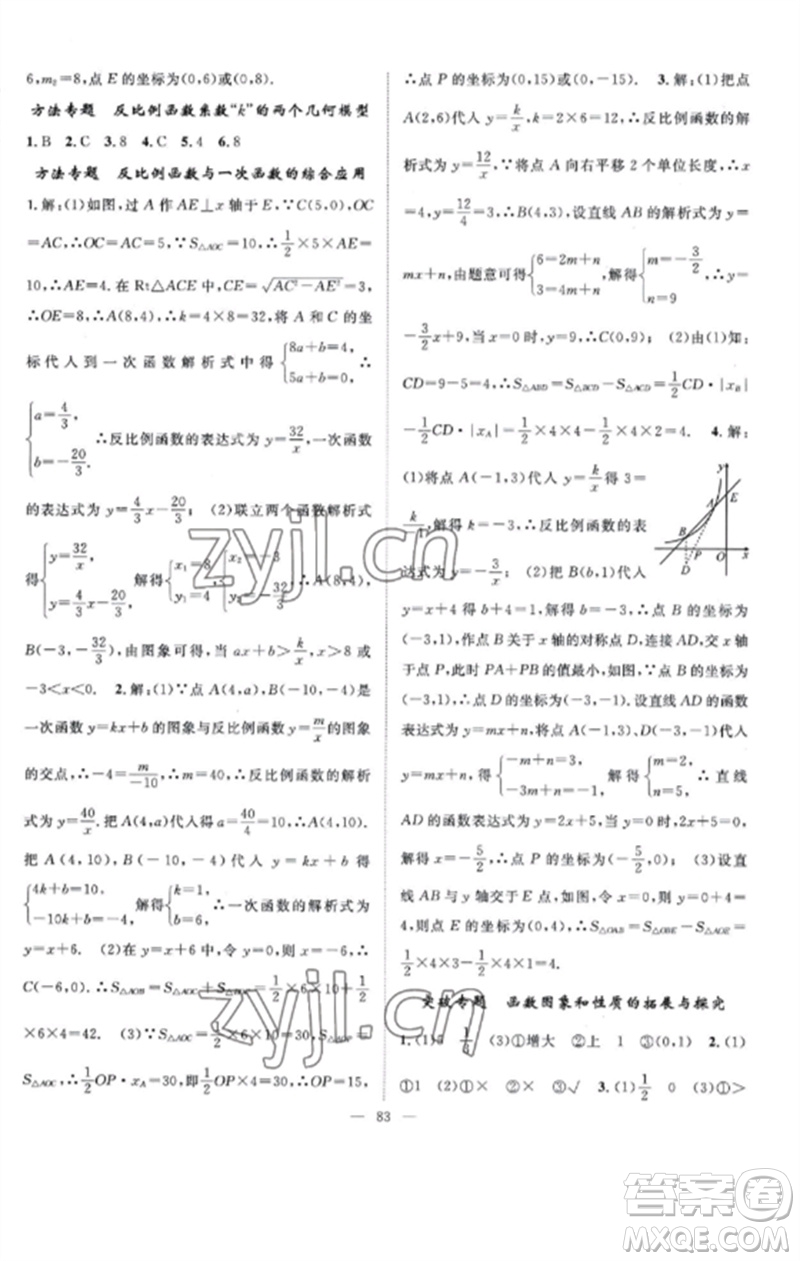 6,m₂=8,点 E 的坐标为(0,6)或(0,8).
方法专题 反比例函数系数“k”的两个几何模型
1.B 2.C 3.8 4.C 5.4 6.8
方法专题 反比例函数与一次函数的综合应用
1.解:(1)如图,过 A 作 AE⊥x 轴于 E,∵C(5,0),OC
=AC,∴OC=AC=5.∵S△AOC=10,∴1/2×5×AE=
10,∴AE=4.在 Rt△ACE 中,CE=√(AC²-AE²)=3,
∴OE=8,∴A(8,4),∴k=4×8=32,将 A 和 C 的坐
标代人到一次函数解析式中得{8a+b=4, 5a+b=0, ∴
{a=4/3, b=-20/3. ∴反比例函数的表达式为 y=32/x,一次函数
的表达式为 y=4/3x-20/3; (2)联立两个函数解析式
得{y=32/x, y=4/3x-20/3, 解得{x₁=8 y₁=4 {x₂=-3 ∴A(8,4),
B(-3,-32/3),由图象可得,当 ax+b>k/x时,x>8 或
-3<x<0. 2.解:(1)∵点 A(4,a),点 B(-10,-4)是
一次函数 y=kx+b 的图象与反比例函数 y=m/x的图象
的交点,∴-4=m/-10,∴m=40,∴反比例函数的解析
式为 y=40/x.把 A(4,a)代人得 a=40/4=10,∴A(4,10).
把 A(4,10),B(-10,-4)代人 y=kx+b 得
{4k+b=10, -10k+b=-4, 解得{k=1, b=6. ∴一次函数的解析式为
y=x+6. (2)在 y=x+6 中,令 y=0,则 x=-6,∴
C(-6,0),∴S△AOB=S△AOC+S△BOC=1/2×6×10+1/2
×6×4=42. (3)∵S△AOC=1/2×6×10=30,∴S△AOP=
S△AOC,∴1/2OP·xA=30,即1/2OP×4=30,∴OP=15,
∴点 P 的坐标为(0,15)或(0,-15). 3.解:(1)把点
A(2,6)代人 y=k/x,k=2×6=12,∴反比例函数的解
析式为 y=12/x,∵将点 A 向右平移 2 个单位长度,∴x
=4,y=12/4=3,∴B(4,3),设直线 AB 的解析式为 y=
mx+n,由题意可得{6=2m+n 3=4m+n, 解得{m=-3/2 n=9 ∴y=
-3/2x+9,当 x=0 时,y=9,∴C(0,9); (2)由(1)知:
CD=9-5=4,∴S△ABD=S△BCD-S△ACD=1/2CD·|xB|
-1/2CD·|xA|=1/2×4×4-1/2×4×2=4. 4.解:
(1)将点 A(-1,3)代人 y=k/x得 3=
k/-1,解得 k=-3,∴反比例函数的表
达式为 y=-3/x; (2)把 B(b,1)代人
y=x+4 得 b+4=1,解得 b=-3,∴点 B 的坐标为
(-3,1),作点 B 关于 x 轴的对称点 D,连接 AD,交 x 轴
于点 P,此时 PA+PB 的值最小,如图,∵点 B 的坐标为
(-3,1),∴点 D 的坐标为(-3,-1),设直线 AD 的函数
表达式为 y=mx+n,将点 A(-1,3)、D(-3,-1)代人
y=mx+n,得{-m+n=3, -3m+n=-1, 解得{m=2, n=5, ∴直线
AD 的函数表达式为 y=2x+5,当 y=0 时,2x+5=0,
解得 x=-5/2,∴点 P 的坐标为(-5/2,0); (3)设直
线 AB 与 y 轴交于点 E,如图,令 x=0,则 y=0+4=
4,则点 E 的坐标为(0,4),∴S△OAB=S△OBE-S△AOE=
1/2×4×3-1/2×4×1=4.
突破专题 函数图象和性质的拓展与探究
1.(1)3 (3)①增大 ②上 1 ③(0,1) 2.(1)
①1 ②-2 (3)①1 ②2 3.(1)1/2 0 (3)①>
y
A
E
B
P
O
x
D
— 83 —
zyjl.cn
zyjl.cn
答案卷
MXQE.COM